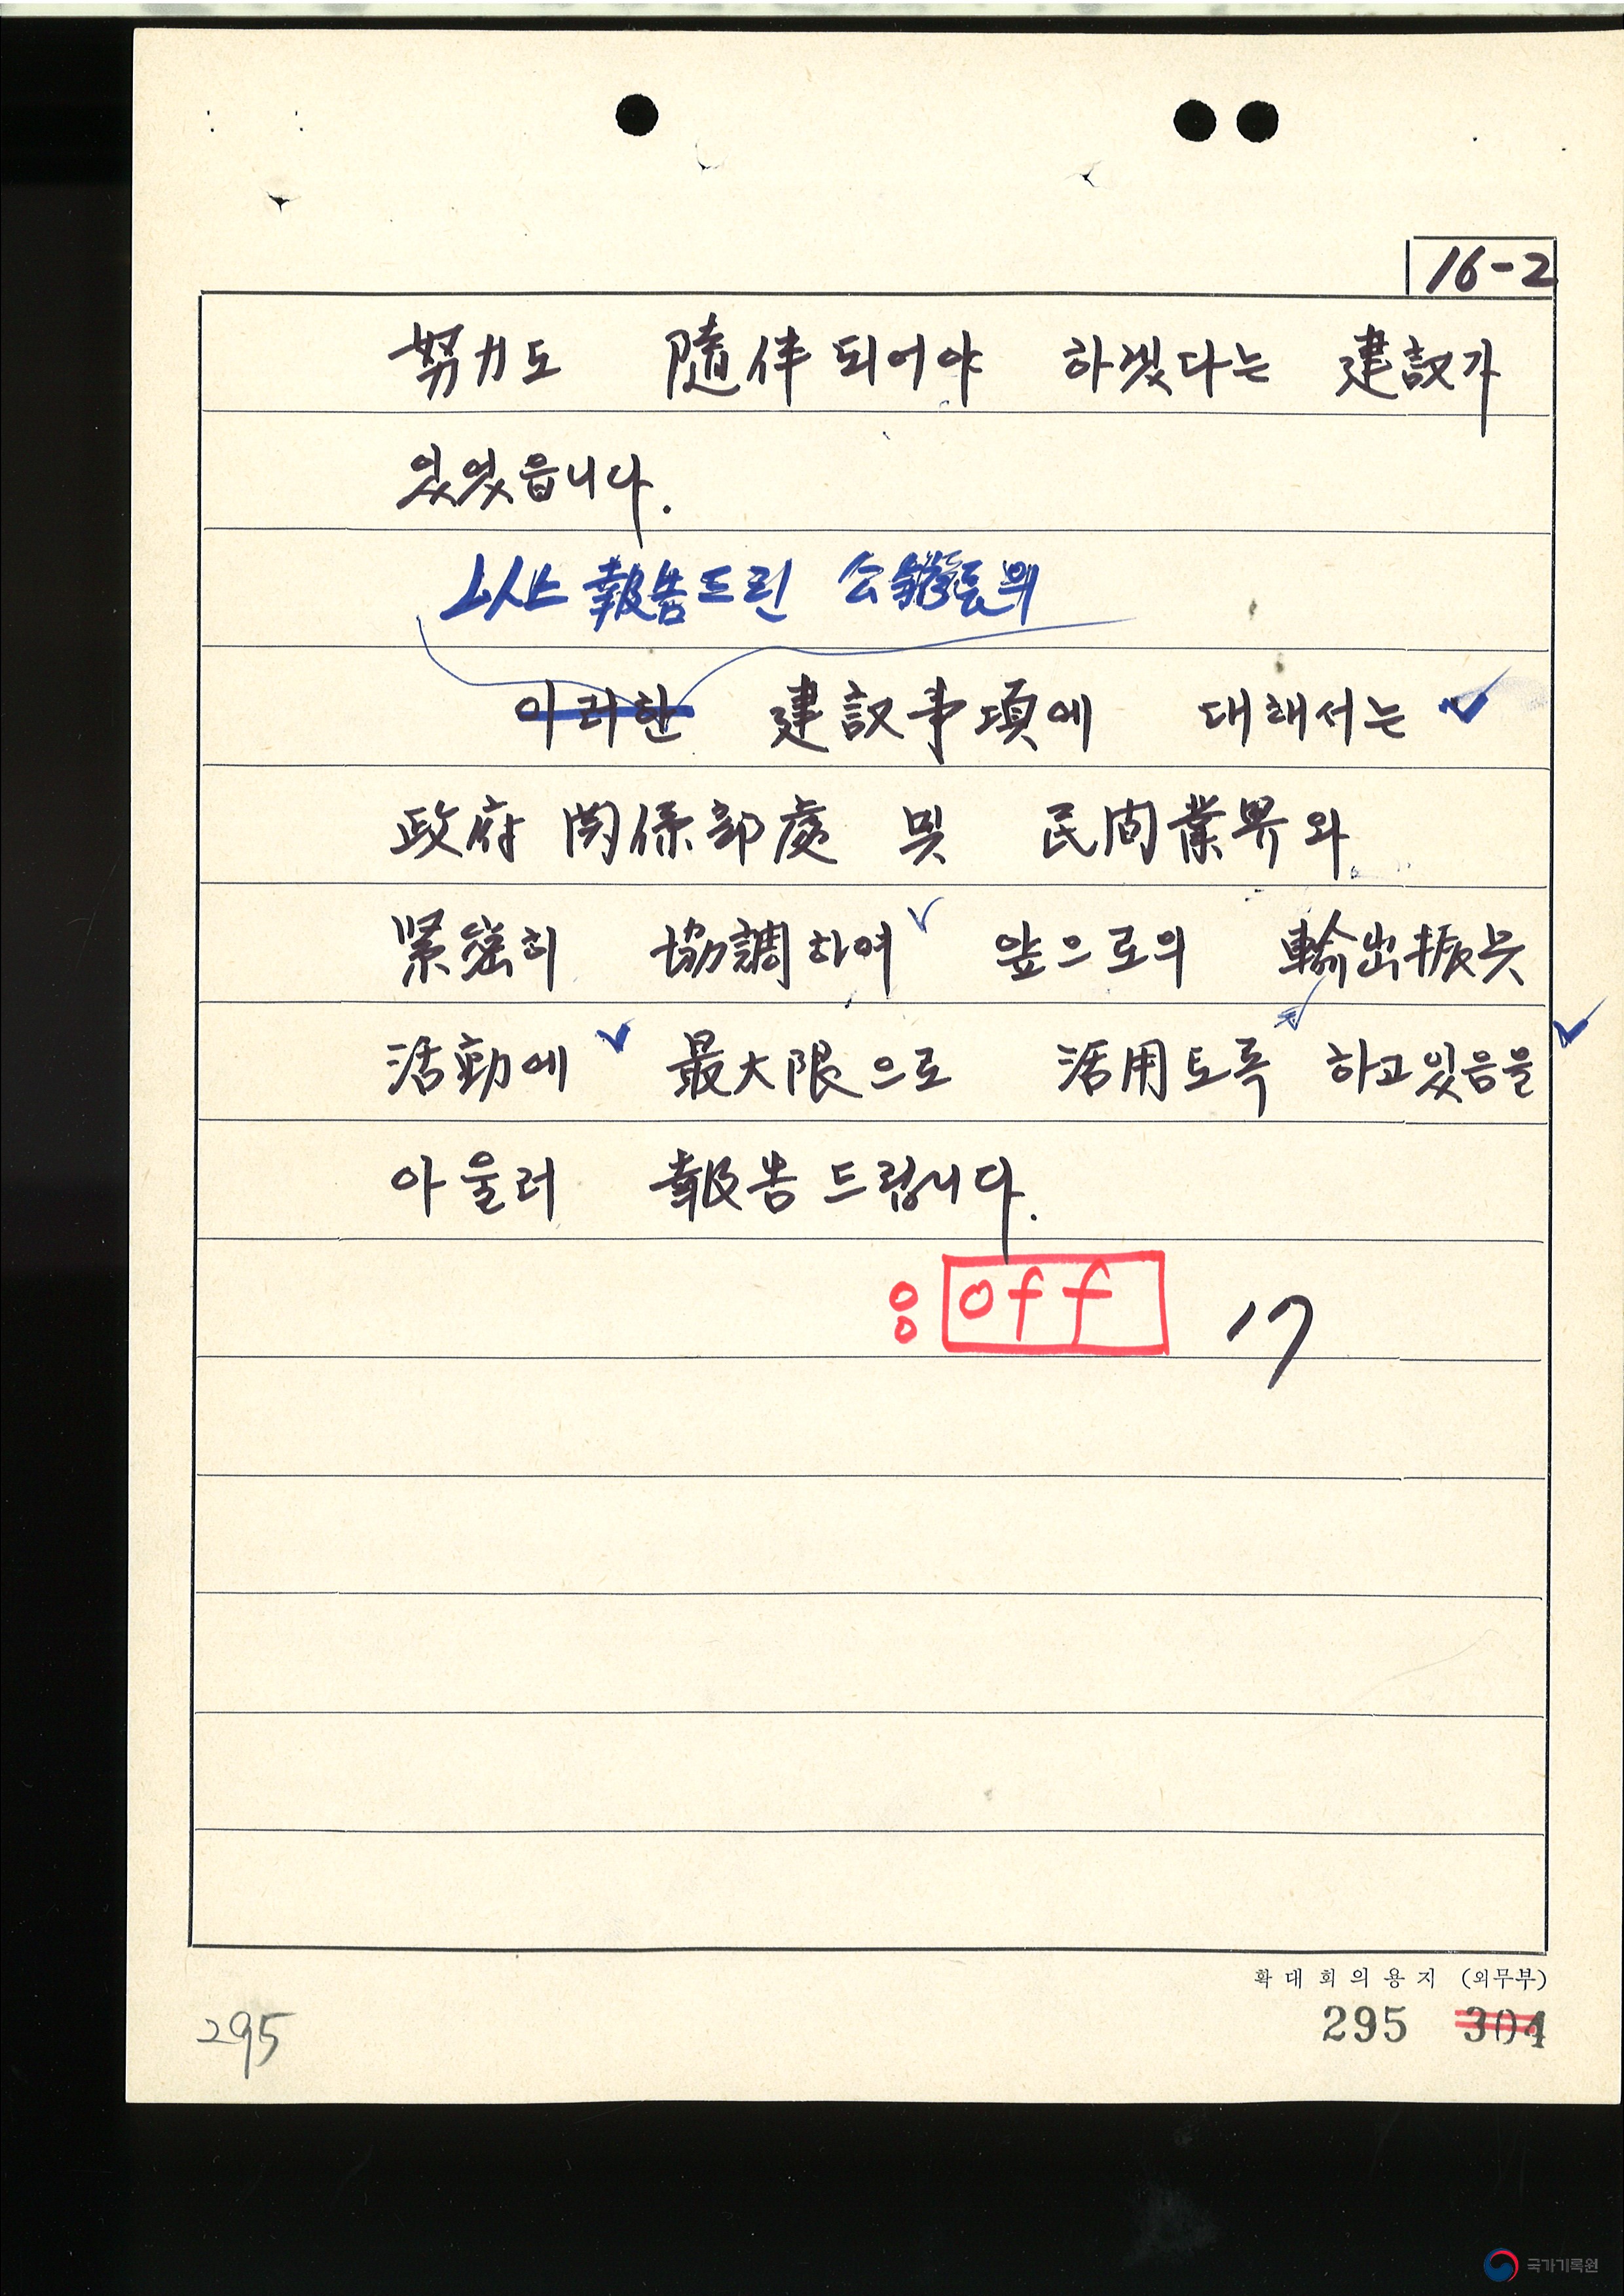 16-2
努力도 隨伴되어야 하겠다는 建議가
있었읍니다.
以上 報告드린 公館長의
이러한 建議事項에 대해서는
政府 関係部處 및 民間業界와
紧密히 協調하여 앞으로의 輸出振興
活動에 最大限으로 活用토록 하고있음을
아울러 報告드립니다.
8 off 17
확대회의용지 (외무부)
295 304
295
국가기록원